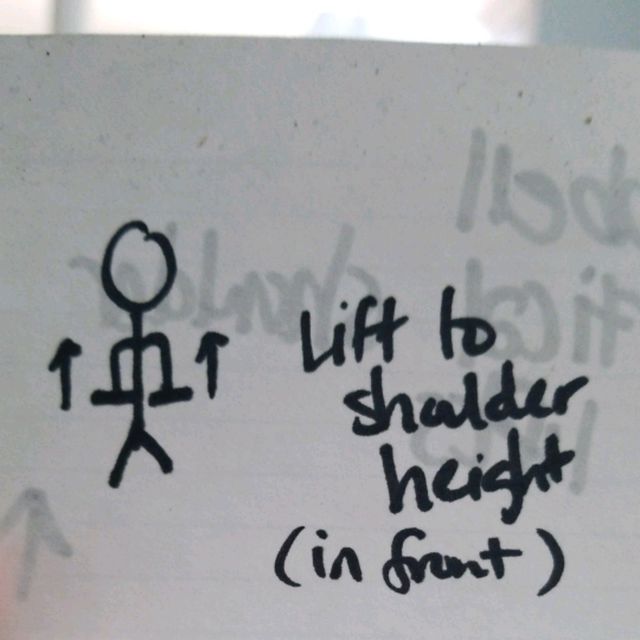 Lift to
shoulder
height
(in front)